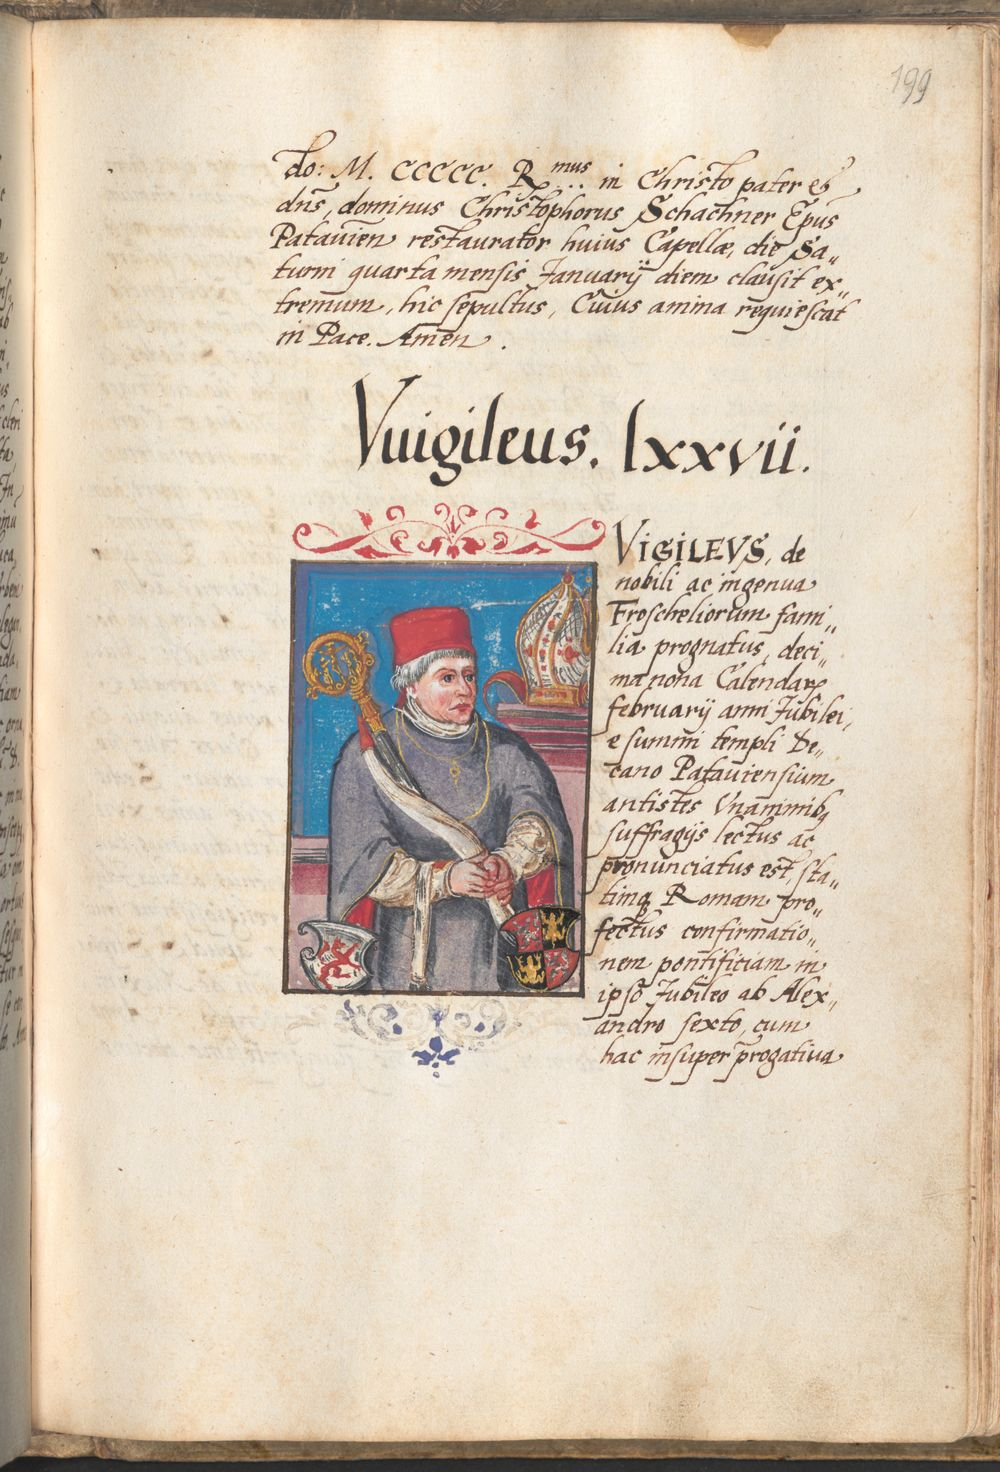 199
do: M. CCCCC. R^mus in Christo pater et
dns, dominus Christophorus Schachner Epus
Patauien restaurator huius Capellæ, die Sa„
turni quarta mensis Januarij diem clausit ex„
tremum, hic sepultus, Cuius anima requiescat
in Pace. Amen.
Vuigileus. lxxvii.
VIGILEVS, de
nobili ac ingenua
Froscheliorum fami„
lia prognatus, deci„
ma nona Calendar
februarij anni Jubilei,
e summi templi De„
cano Patauiensium
antistes Vnanimibq
suffragijs lectus ac
pronunciatus est, sta„
timq Romam pro„
fectus confirmatio„
nem pontificiam in
ipso Jubileo ab Alex„
andro sexto, cum
hac insuper progatiua